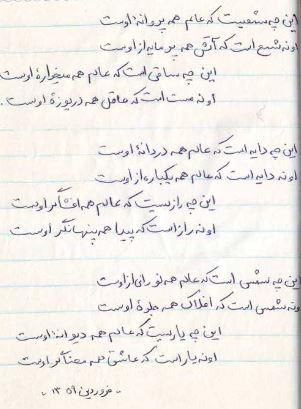 این چه شمعیست که عالم همه پروانهٔ اوست
او نه شمع است که آتش همه پر مایه از اوست
این چه ساقی است که عالم همه میخوارهٔ اوست
او نه مست است که عاقل همه دریوزهٔ اوست.
این چه دایه است که عالم همه دردانهٔ اوست
او نه دایه است که عالم همه یکباره از اوست
این چه رازیست که عالم همه افشاگر اوست
او نه راز است که پیدا همه پنهانگر اوست
این چه شمسی است که عالم همه نورانی از اوست
او نه شمسی است که افلاک همه جلوهٔ اوست
این چه یاریست که عالم همه دیوانهٔ اوست
او نه یار است که عاشق همه معناگر اوست
فروردین ۱۳۵۹